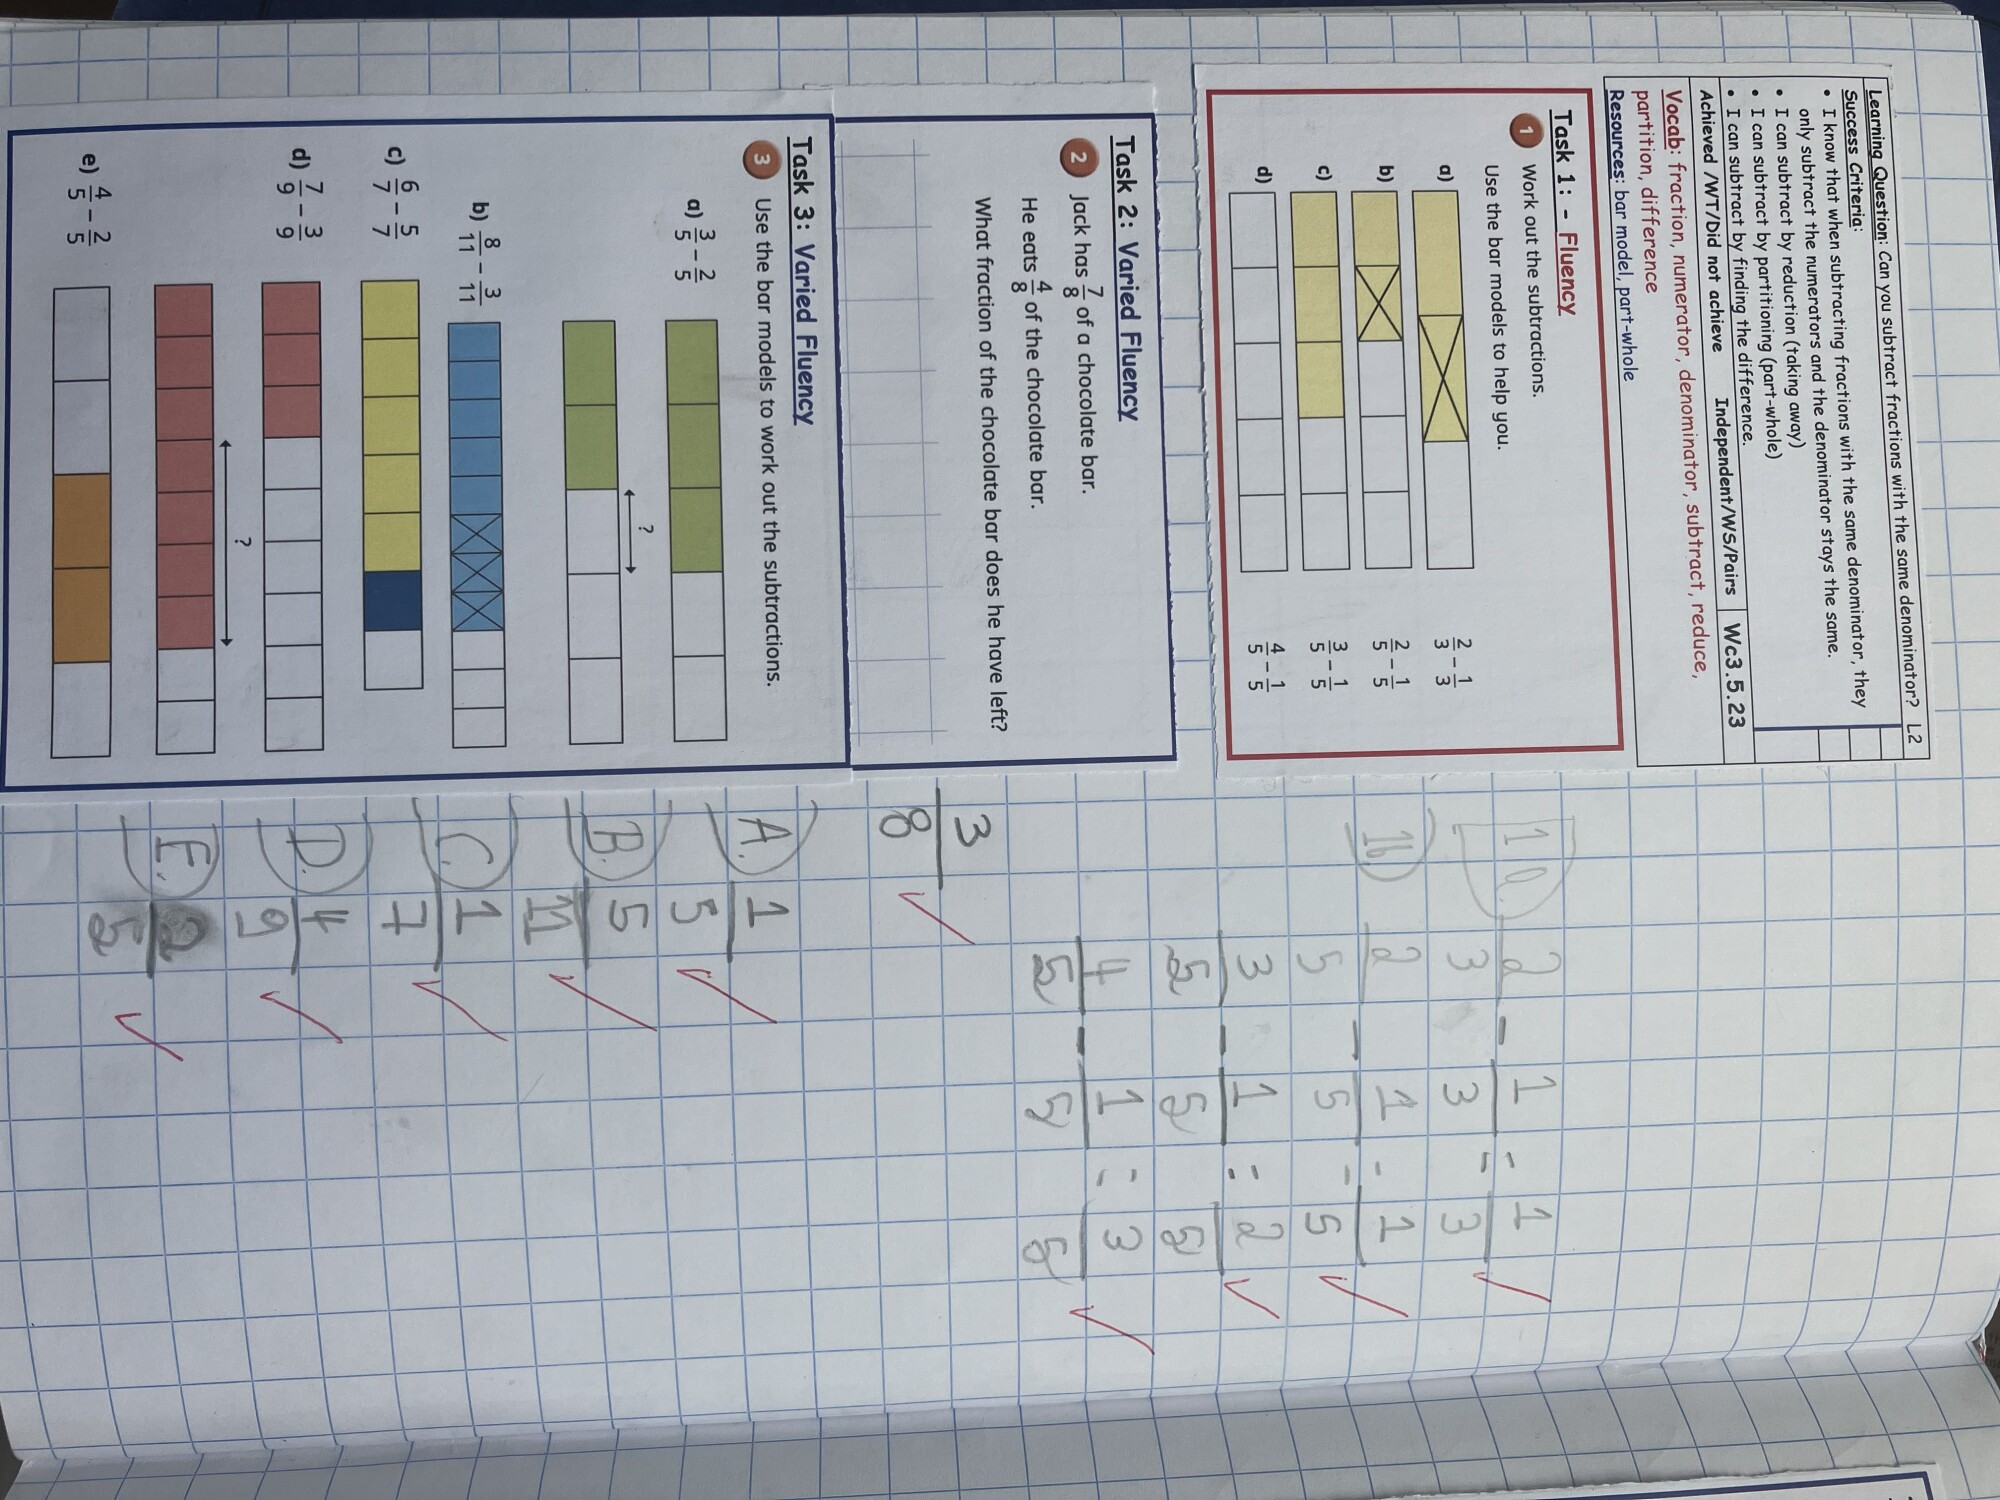 Learning Question: Can you subtract fractions with the same denominator? L2
Success Criteria:
• I know that when subtracting fractions with the same denominator, they
only subtract the numerators and the denominator stays the same.
• I can subtract by reduction (taking away)
• I can subtract by partitioning (part-whole)
• I can subtract by finding the difference.
Achieved /WT/Did not achieve Independent/WS/Pairs Wc3.5.23
Vocab: fraction, numerator, denominator, subtract, reduce,
partition, difference
Resources: bar model, part-whole
Task 1: - Fluency
1 Work out the subtractions.
Use the bar models to help you.
a) 2/3 - 1/3
b) 2/5 - 1/5
c) 3/5 - 1/5
d) 4/5 - 1/5
1a. 2/3 - 1/3 = 1/3
1b) 2/5 - 1/5 = 1/5
3/5 - 1/5 = 2/5
4/5 - 1/5 = 3/5
Task 2: Varied Fluency
2 Jack has 7/8 of a chocolate bar.
He eats 4/8 of the chocolate bar.
What fraction of the chocolate bar does he have left?
3/8
Task 3: Varied Fluency
3 Use the bar models to work out the subtractions.
a) 3/5 - 2/5
?
b) 8/11 - 3/11
c) 6/7 - 5/7
d) 7/9 - 3/9
?
e) 4/5 - 2/5
A. 1/5
B. 5/11
C. 1/7
D. 4/9
E. 2/5